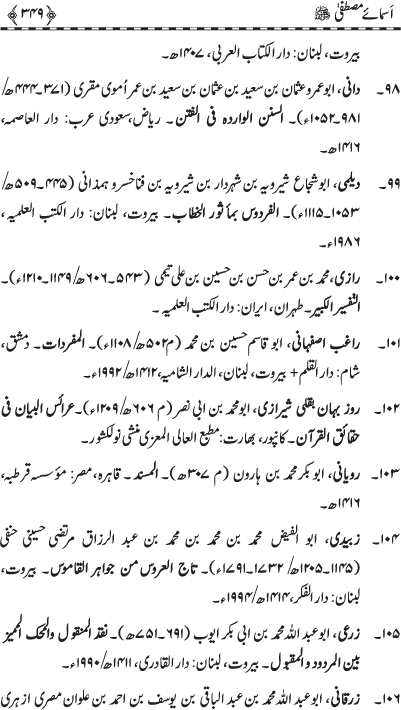 اسمائے مصطفیٰ ﷺ ﴿۳۴۹﴾
بیروت، لبنان: دار الکتاب العربی، ۱۴۰۷ھ۔
۹۸۔ دانی، ابو عمرو عثمان بن سعید بن عثمان بن سعید بن عمر اُموی مقری (۳۷۱۔۴۴۴ھ/
۹۸۱۔۱۰۵۲ء)۔ السنن الواردہ فی الفتن۔ ریاض، سعودی عرب: دار العاصمہ،
۱۴۱۶ھ۔
۹۹۔ دیلمی، ابو شجاع شیرویہ بن شہردار بن شیرویہ بن فناخسرو ہمذانی (۴۴۵۔۵۰۹ھ/
۱۰۵۳۔۱۱۱۵ء)۔ الفردوس بمأثور الخطاب۔ بیروت، لبنان: دار الکتب العلمیہ،
۱۹۸۶ء۔
۱۰۰۔ رازی، محمد بن عمر بن حسن بن حسین بن علی تیمی (۵۴۳۔۶۰۶ھ/۱۱۴۹۔۱۲۱۰ء)۔
التفسیر الکبیر۔ طہران، ایران: دار الکتب العلمیہ۔
۱۰۱۔ راغب اصفہانی، ابو قاسم حسین بن محمد (م ۵۰۲ھ/۱۱۰۸ء)۔ المفردات۔ دمشق،
شام: دار القلم + بیروت، لبنان، الدار الشامیہ، ۱۴۱۲ھ/۱۹۹۲ء۔
۱۰۲۔ روز بہان بقلی شیرازی، ابو محمد بن ابی نصر (م ۶۰۶ھ/۱۲۰۹ء)۔ عرائس البیان فی
حقائق القرآن۔ کانپور، بھارت: مطبع العالی المعزی منشی نولکشور۔
۱۰۳۔ رویانی، ابو بکر محمد بن ہارون (م ۳۰۷ھ)۔ المسند۔ قاہرہ، مصر: مؤسسہ قرطبہ،
۱۴۱۶ھ۔
۱۰۴۔ زبیدی، ابو الفیض محمد بن محمد بن محمد بن عبد الرزاق مرتضیٰ حسینی حنفی
(۱۱۴۵۔۱۲۰۵ھ/ ۱۷۳۲۔۱۷۹۱ء)۔ تاج العروس من جواہر القاموس۔ بیروت،
لبنان: دار الفکر، ۱۴۱۴ھ/۱۹۹۴ء۔
۱۰۵۔ زرعی، ابو عبد اللہ محمد بن ابی بکر ایوب (۶۹۱۔۷۵۱ھ)۔ نقد المنقول والمحک الممیز
بین المردود والمقبول۔ بیروت، لبنان: دار القادری، ۱۴۱۱ھ/۱۹۹۰ء۔
۱۰۶۔ زرقانی، ابو عبد اللہ محمد بن عبد الباقی بن یوسف بن احمد بن علوان مصری ازہری